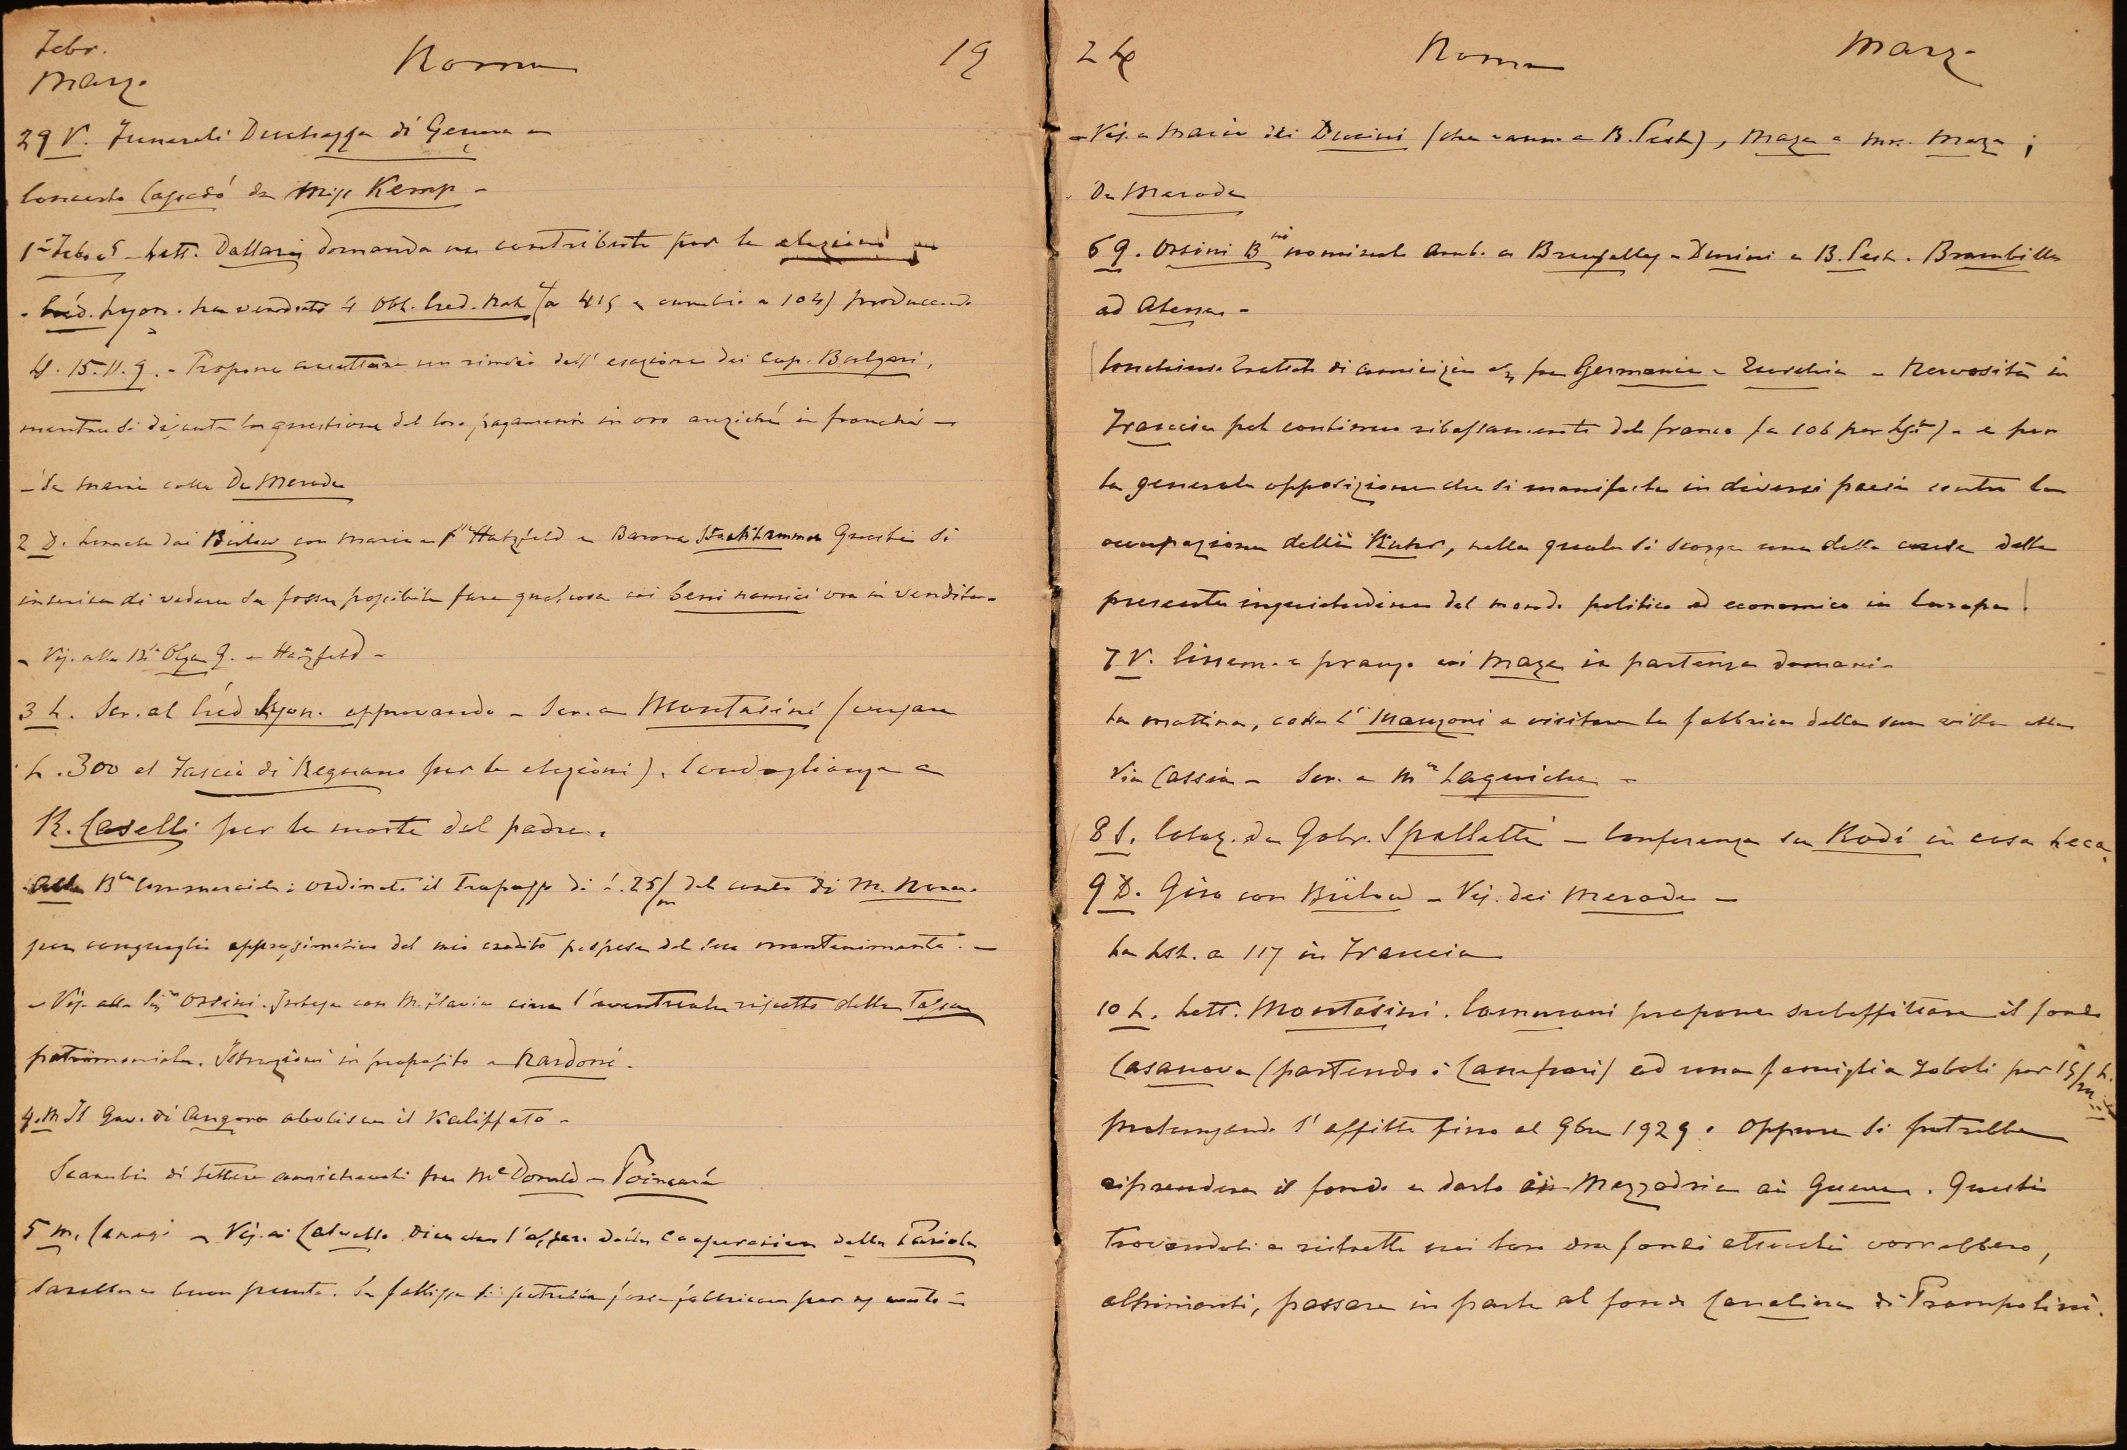 Febr.
Marzo
Roma
19
29 V. Funerali Duchessa di Genova
Concerto Cassadó da Miss Kemp -
Lett. Dallari domanda un contributo per le elezioni
- Créd. Lyon. ha venduto 4 Obl. Cred. (a 415 e cambio a 104) producendo
15.11.9. - Propone accettare un rinvio dell'esazione dei cup. Bulgari,
mentre si discute la questione del loro pagamento in oro anziché in franchi -
- Da Maria colla De Merode
2 D. dai Bülow con Maria Hatzfeld e Barone Questi si
incarica di vedere se fosse possibile fare qualcosa coi beni nemici ora in vendita -
- Vis. alla Olga G. - Hatzfeld -
3 L. Scr. al Créd Lyon. approvando - Scr. a Montasini (versare
L. 300 al Fascio di Regnano per le elezioni). Condoglianze a
R. Caselli per la morte del padre.
Alla Bca Commerciale: ordinato il trapasso di L. 25/m dal conto di M.
per conguaglio approssimativo del mio credito p. spese del suo mantenimento. -
- Vis. alla Orsini. con M. circa l'eventuale riscatto della Tassa
patrimoniale. Istruzioni in proposito a Nardoni.
4. M Il Gov. di Angora abolisce il Kaliffato -
Scambio di lettere amichevoli fra Mc Donald - Poincaré
5 M. - Vis. ai Calvello. Dice che l'affare della Cooperativa della
sarebbe a buon punto. Se fallisse si potrebbe forse fabbricare per ns conto -
24
Roma
Marzo
- Vis. a Maria dei Durini (che vanno a B. Pest), Maza e Mrs. Maza;
De Merode
6 G. Orsini Bni nominato amb. a Bruxelles - Durini a B. Pest. Brambilla
ad Atene -
Conchiuso trattato di amicizia fra Germania e Turchia - Nervosità in
Francia pel continuo ribassamento del franco (a 106 per Lstn) - e per
la generale opposizione che si manifesta in diversi paesi contro la
occupazione della Ruhr, nella quale si scorge una delle cause della
presente inquietudine del mondo politico ed economico in Europa.
7 V. e pranzo coi Maza in partenza domani -
La mattina, colla Manzoni a visitare la fabbrica della sua villa alla
Via Cassia - Scr. a Laguiche -
8 S. Colaz. da Gabr. Spalletti - Conferenza su Rodi in casa
9 D. Giro con Bülow - Vis. dei Merode -
La Lst. a 117 in Francia
10 L. Lett. Montasini. propone subaffittare il fondo
Casanova (partendo i ) ad una famiglia Zoboli per 15/m L.
prolungando l'affitto fino al 9bre 1929. Oppure si potrebbe
riprendere il fondo e darlo in Mezzadria ai Guerra. Questi
trovandosi a ristrette nei loro due fondi attuali vorrebbero,
altrimenti, passare in parte al fondo di Prampolini.